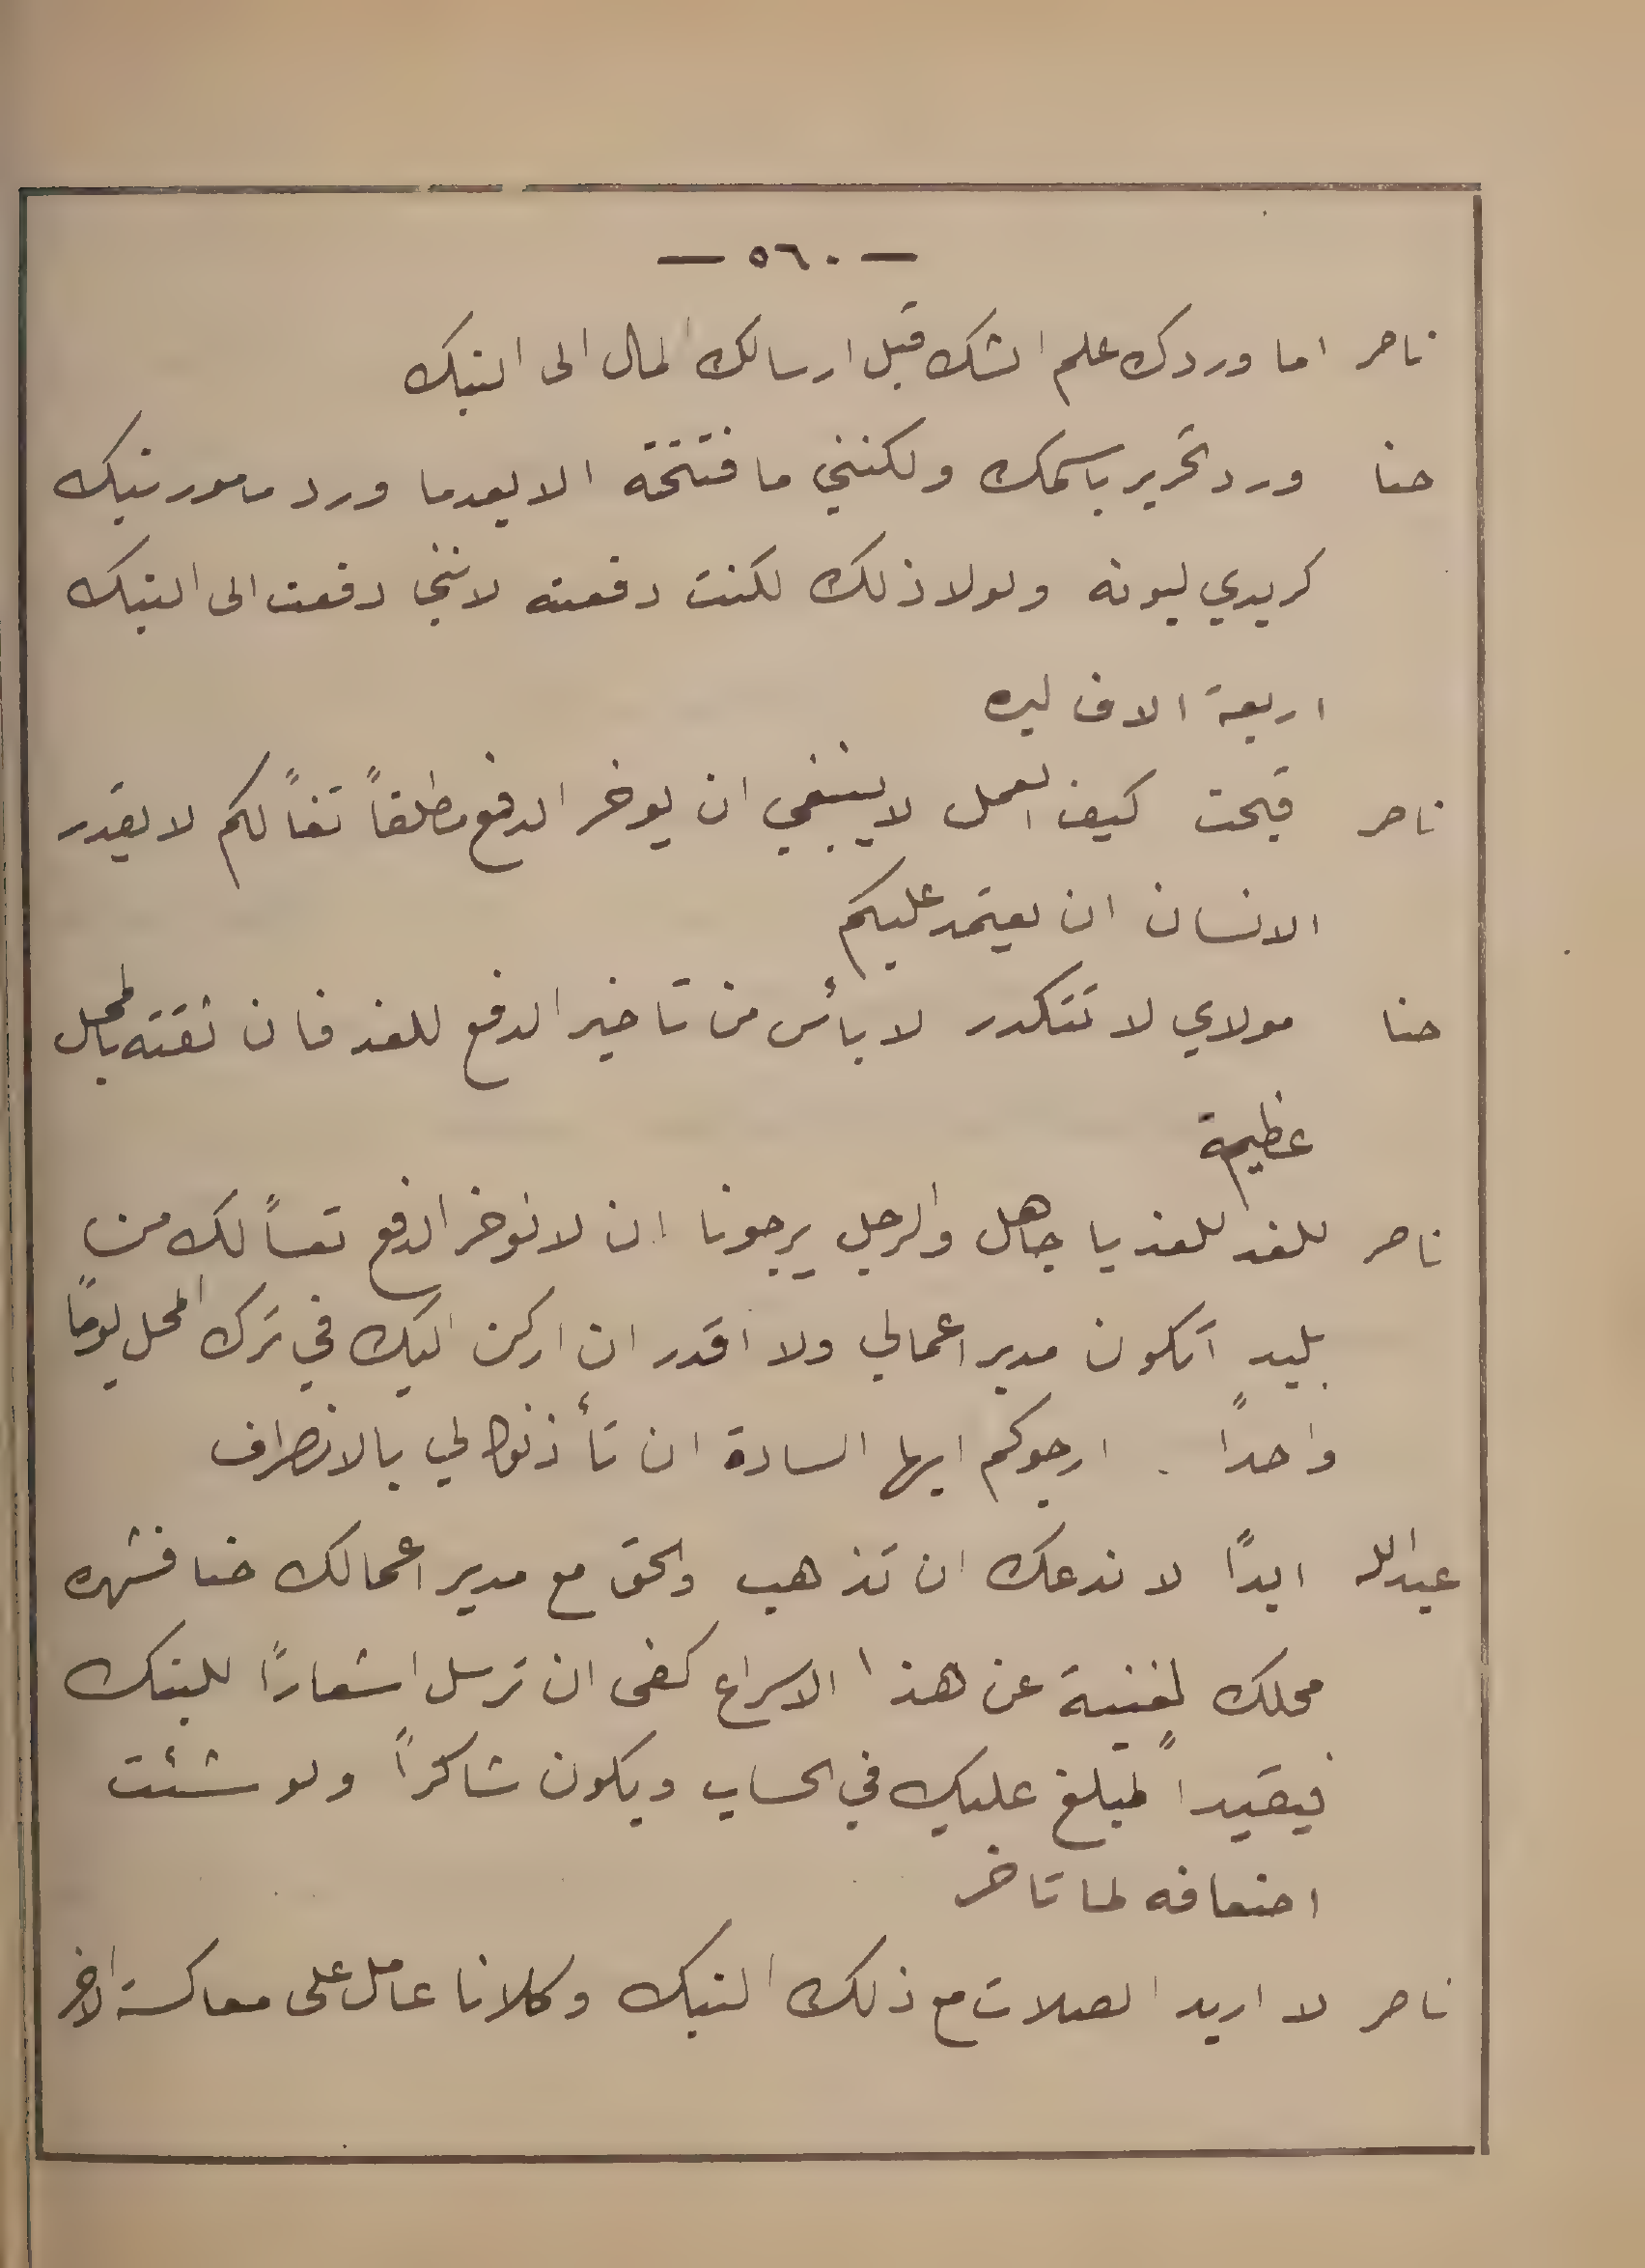 — ٥٦٠ —
ناصر اما وردك علم الشك قبل ارسالك المال الى البنك
حنا ورد تحرير باسمك ولكنني ما فتحته الا بعدما ورد مامور بنك
كريدي ليونه ولولا ذلك لكنت دفعته لانني دفعت الى البنك
اربعة الاف ليره
ناصر قبحت كيف العمل لا ينبغي ان يوخر الدفع مطلقاً تفاً لكم لا يقدر
الانسان ان يعتمد عليكم
حنا مولاي لا تتكدر لا بأس من تاخير الدفع للغد فان ثقته بالمحل
عظيمة
ناصر للغد للغد يا جاهل والرجل يرجونا ان لا نوخر الدفع تعساً لك من
بليد أتكون مدير اعمالي ولا اقدر ان اركن اليك في ترك المحل يوماً
واحداً . ارجوكم ايها السادة ان تأذنوا لي بالانصراف
عبدالله ابداً لا ندعك ان تذهب والحق مع مدير اعمالك حنا فشهره
محلك لغنية عن هذا الاسراع كفى ان ترسل اشعاراً للبنك
فيقيد المبلغ عليك في الحساب ويكون شاكراً ولو شئت
اضعافه لما تاخر
ناصر لا اريد الصلات مع ذلك البنك وكلانا عامل على معاكسة الاخر